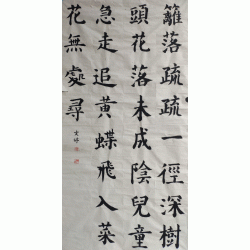 籬落疏疏一徑深樹
頭花落未成陰兒童
急走追黃蝶飛入菜
花無處尋